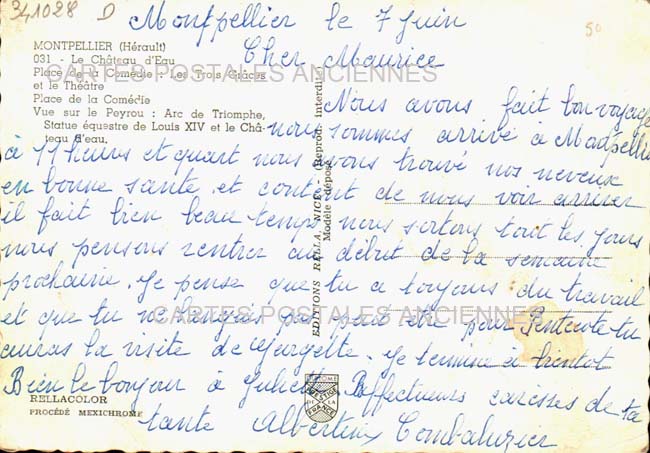 341028 D
50
Montpellier le 7 Juin
Cher Maurice
MONTPELLIER (Hérault)
031 - Le Château d'Eau
Place de la Comédie : Les Trois Grâces
et le Théâtre
Place de la Comédie
Vue sur le Peyrou : Arc de Triomphe,
Statue équestre de Louis XIV et le Châ-
teau d'eau.
CARTES POSTALES ANCIENNES
Nous avons fait bon voyage
nous sommes arrivé à Montpellier
à 11 heurs et quart nous avons trouvé nos neveux
en bonne sante et content de nous voir arriver
il fait bien beau temps nous sortons tout les jours
nous pensons rentrer au début de la semaine
prochaine. Je pense que tu a toujours du travail
et que tu ne pas peut être pour Pentecote tu
auras la visite de Je termine a bientot
Bien le bonjour à Affectueux caresses de ta
tante Albertine Combaluzier
CARTES POSTALES ANCIENNES
EDITIONS RELLA, NICE - (Reprod. interdite)
Modèle déposé
RELLACOLOR
PROCÉDÉ MEXICHROME
PRESTIGE
DE LA
FRANCE